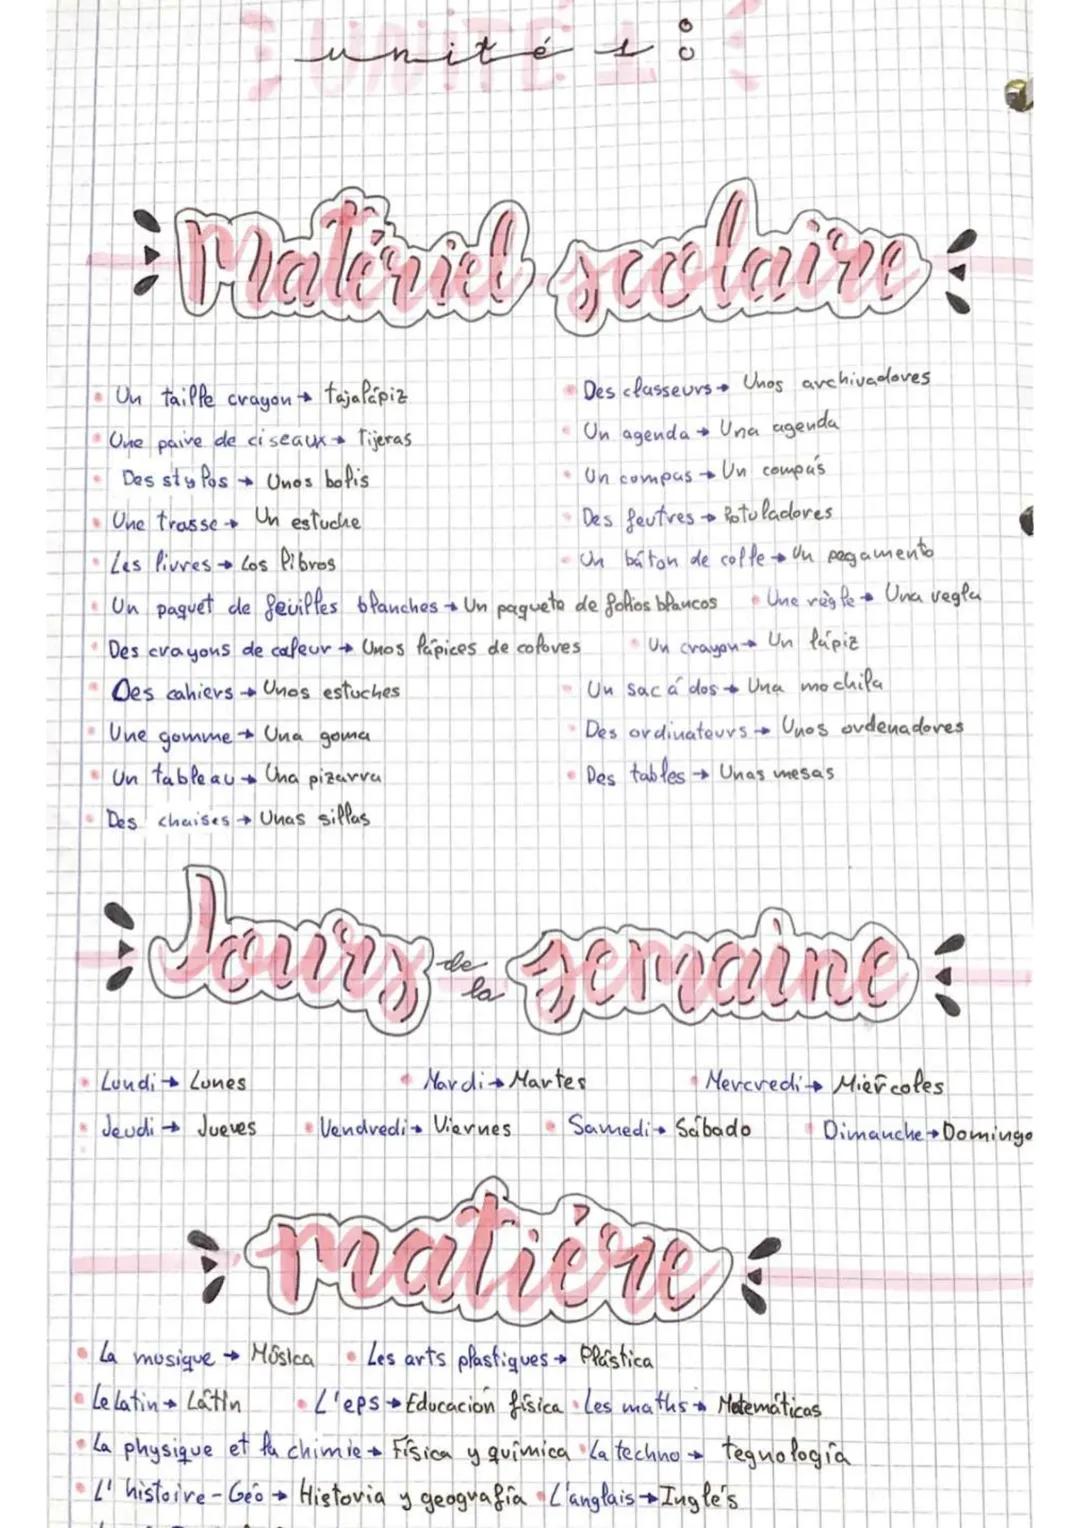 unité 1:
Matériel scolaire
Un taille crayon → tajalápiz
Des classeurs → Unos archivadores
Une paire de ciseaux → Tijeras
Un agenda → Una agenda
Des stylos → Unos bolis
Un compas → Un compás
Une trasse → Un estuche
Des feutres → Rotuladores
Les livres → Los libros
Un bâton de colle → Un pegamento
Un paquet de feuilles blanches → Un paquete de folios blancos
Une règle → Una regla
Des crayons de caleur → Unos lápices de colores
Un crayon → Un lápiz
Des cahiers → Unos estuches
Un sac á dos → Una mochila
Une gomme → Una goma
Des ordinateurs → Unos ordenadores
Un tableau → Una pizarra
Des tables → Unas mesas
Des chaises → Unas sillas
Jours de la semaine
Lundi → Lunes
Mardi → Martes
Mercredi → Miércoles
Jeudi → Jueves
Vendredi → Viernes
Samedi → Sábado
Dimanche → Domingo
matiére
La musique → Música
Les arts plastiques → Plástica
Le latin → Látin
L'eps → Educación física
Les maths → Matemáticas
La physique et la chimie → Física y química
La techno → tegnología
L'histoire-Géo → Historia y geografía
L'anglais → Inglés